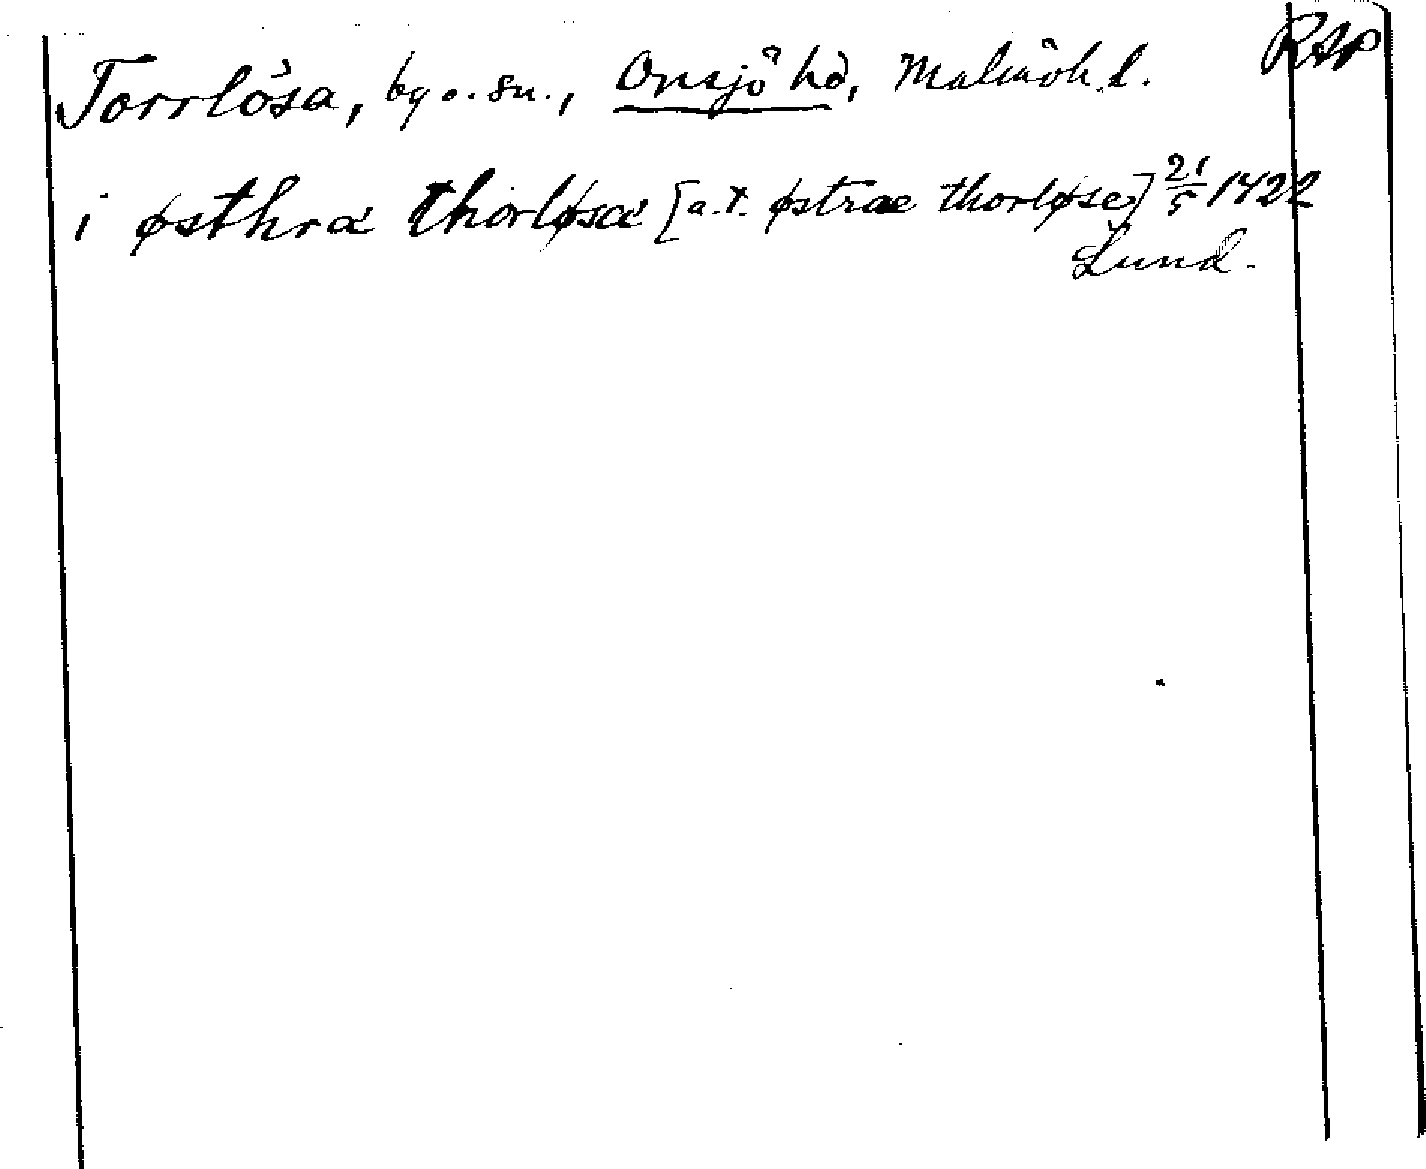 Torrlösa, by o. sn., Onsjö hd, Malmöh. l. RAP
i østhra thorløsæ [a.t. østrae thorløse] 21/5 1422
Lund.